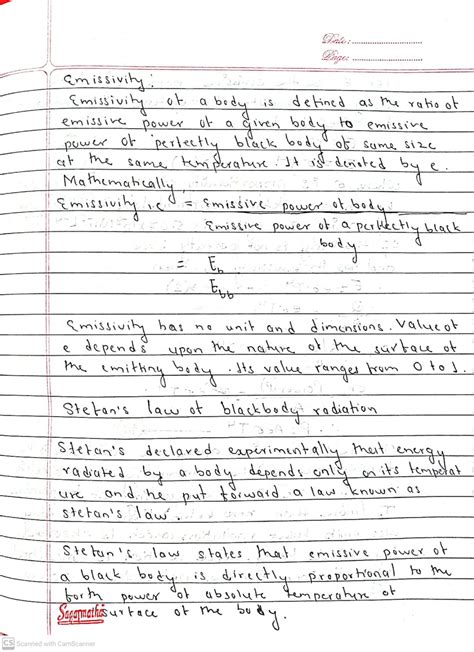 Date:
Page:
Emissivity:
Emissivity of a body is defined as the ratio of
emissive power of a given body to emissive
power of perfectly black body of same size
at the same temperature. It is denoted by e.
Mathematically,
Emissivity i.e = Emissive power of body
Emissive power of a perfectly black
body
= Eb
Ebb
Emissivity has no unit and dimensions. Value of
e depends upon the nature of the surface of
the emitting body. Its value ranges from 0 to 1.
Stefan's law of blackbody radiation
Stefan's declared experimentally that energy
radiated by a body depends only on its temperat
ure and he put forward a law known as
stefan's law.
Stefan's law states that emissive power of
a black body is directly proportional to the
forth power of absolute temperature of
Sagarmatha surface of the body.
CS Scanned with CamScanner